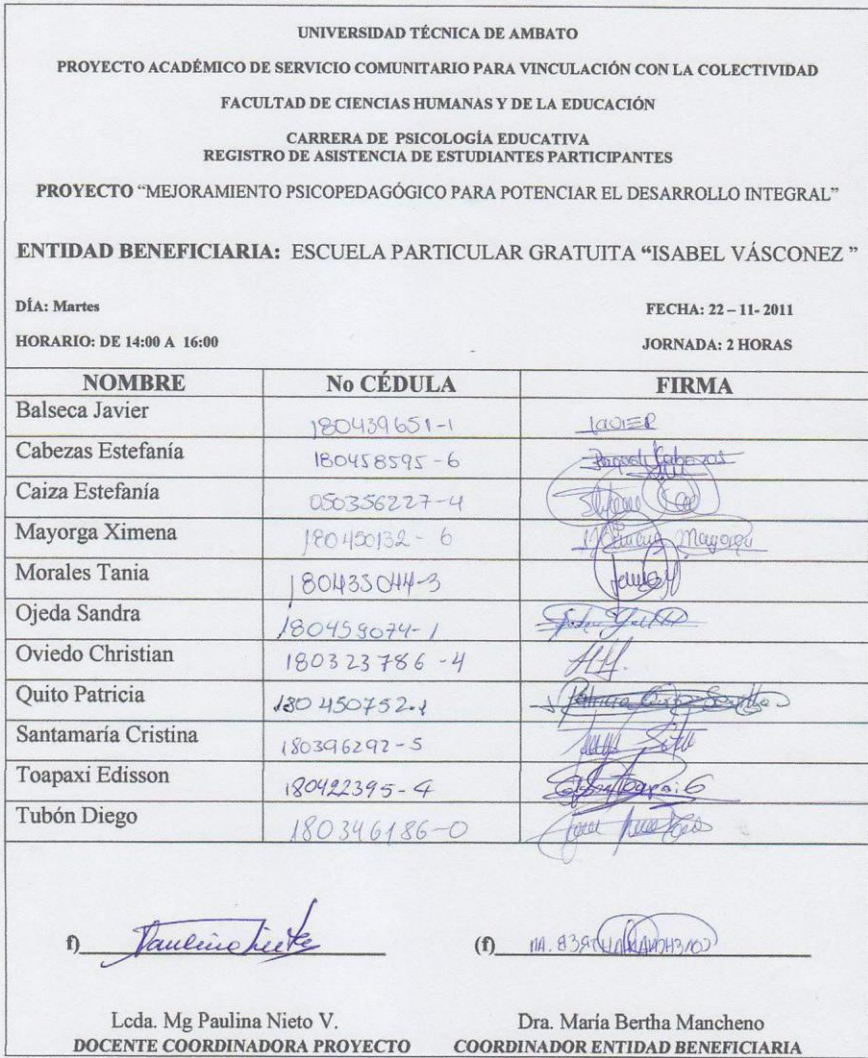 UNIVERSIDAD TÉCNICA DE AMBATO
PROYECTO ACADÉMICO DE SERVICIO COMUNITARIO PARA VINCULACIÓN CON LA COLECTIVIDAD
FACULTAD DE CIENCIAS HUMANAS Y DE LA EDUCACIÓN
CARRERA DE PSICOLOGÍA EDUCATIVA
REGISTRO DE ASISTENCIA DE ESTUDIANTES PARTICIPANTES
PROYECTO “MEJORAMIENTO PSICOPEDAGÓGICO PARA POTENCIAR EL DESARROLLO INTEGRAL”
ENTIDAD BENEFICIARIA: ESCUELA PARTICULAR GRATUITA “ISABEL VÁSCONEZ ”
DÍA: Martes FECHA: 22 – 11- 2011
HORARIO: DE 14:00 A 16:00 JORNADA: 2 HORAS
NOMBRE No CÉDULA FIRMA
Balseca Javier 180439651-1 JAVIER
Cabezas Estefanía 180458595-6 Cabezas
Caiza Estefanía 050356227-4
Mayorga Ximena 180450132-6 Ximena Mayorga
Morales Tania 180435044-3
Ojeda Sandra 180459074-1
Oviedo Christian 180323786-4
Quito Patricia 180450752-1 Patricia
Santamaría Cristina 180396292-5
Toapaxi Edisson 180422395-4
Tubón Diego 180346186-0
f) Paulina Nieto (f) MA. BERTHA MANCHENO
Lcda. Mg Paulina Nieto V. Dra. María Bertha Mancheno
DOCENTE COORDINADORA PROYECTO COORDINADOR ENTIDAD BENEFICIARIA